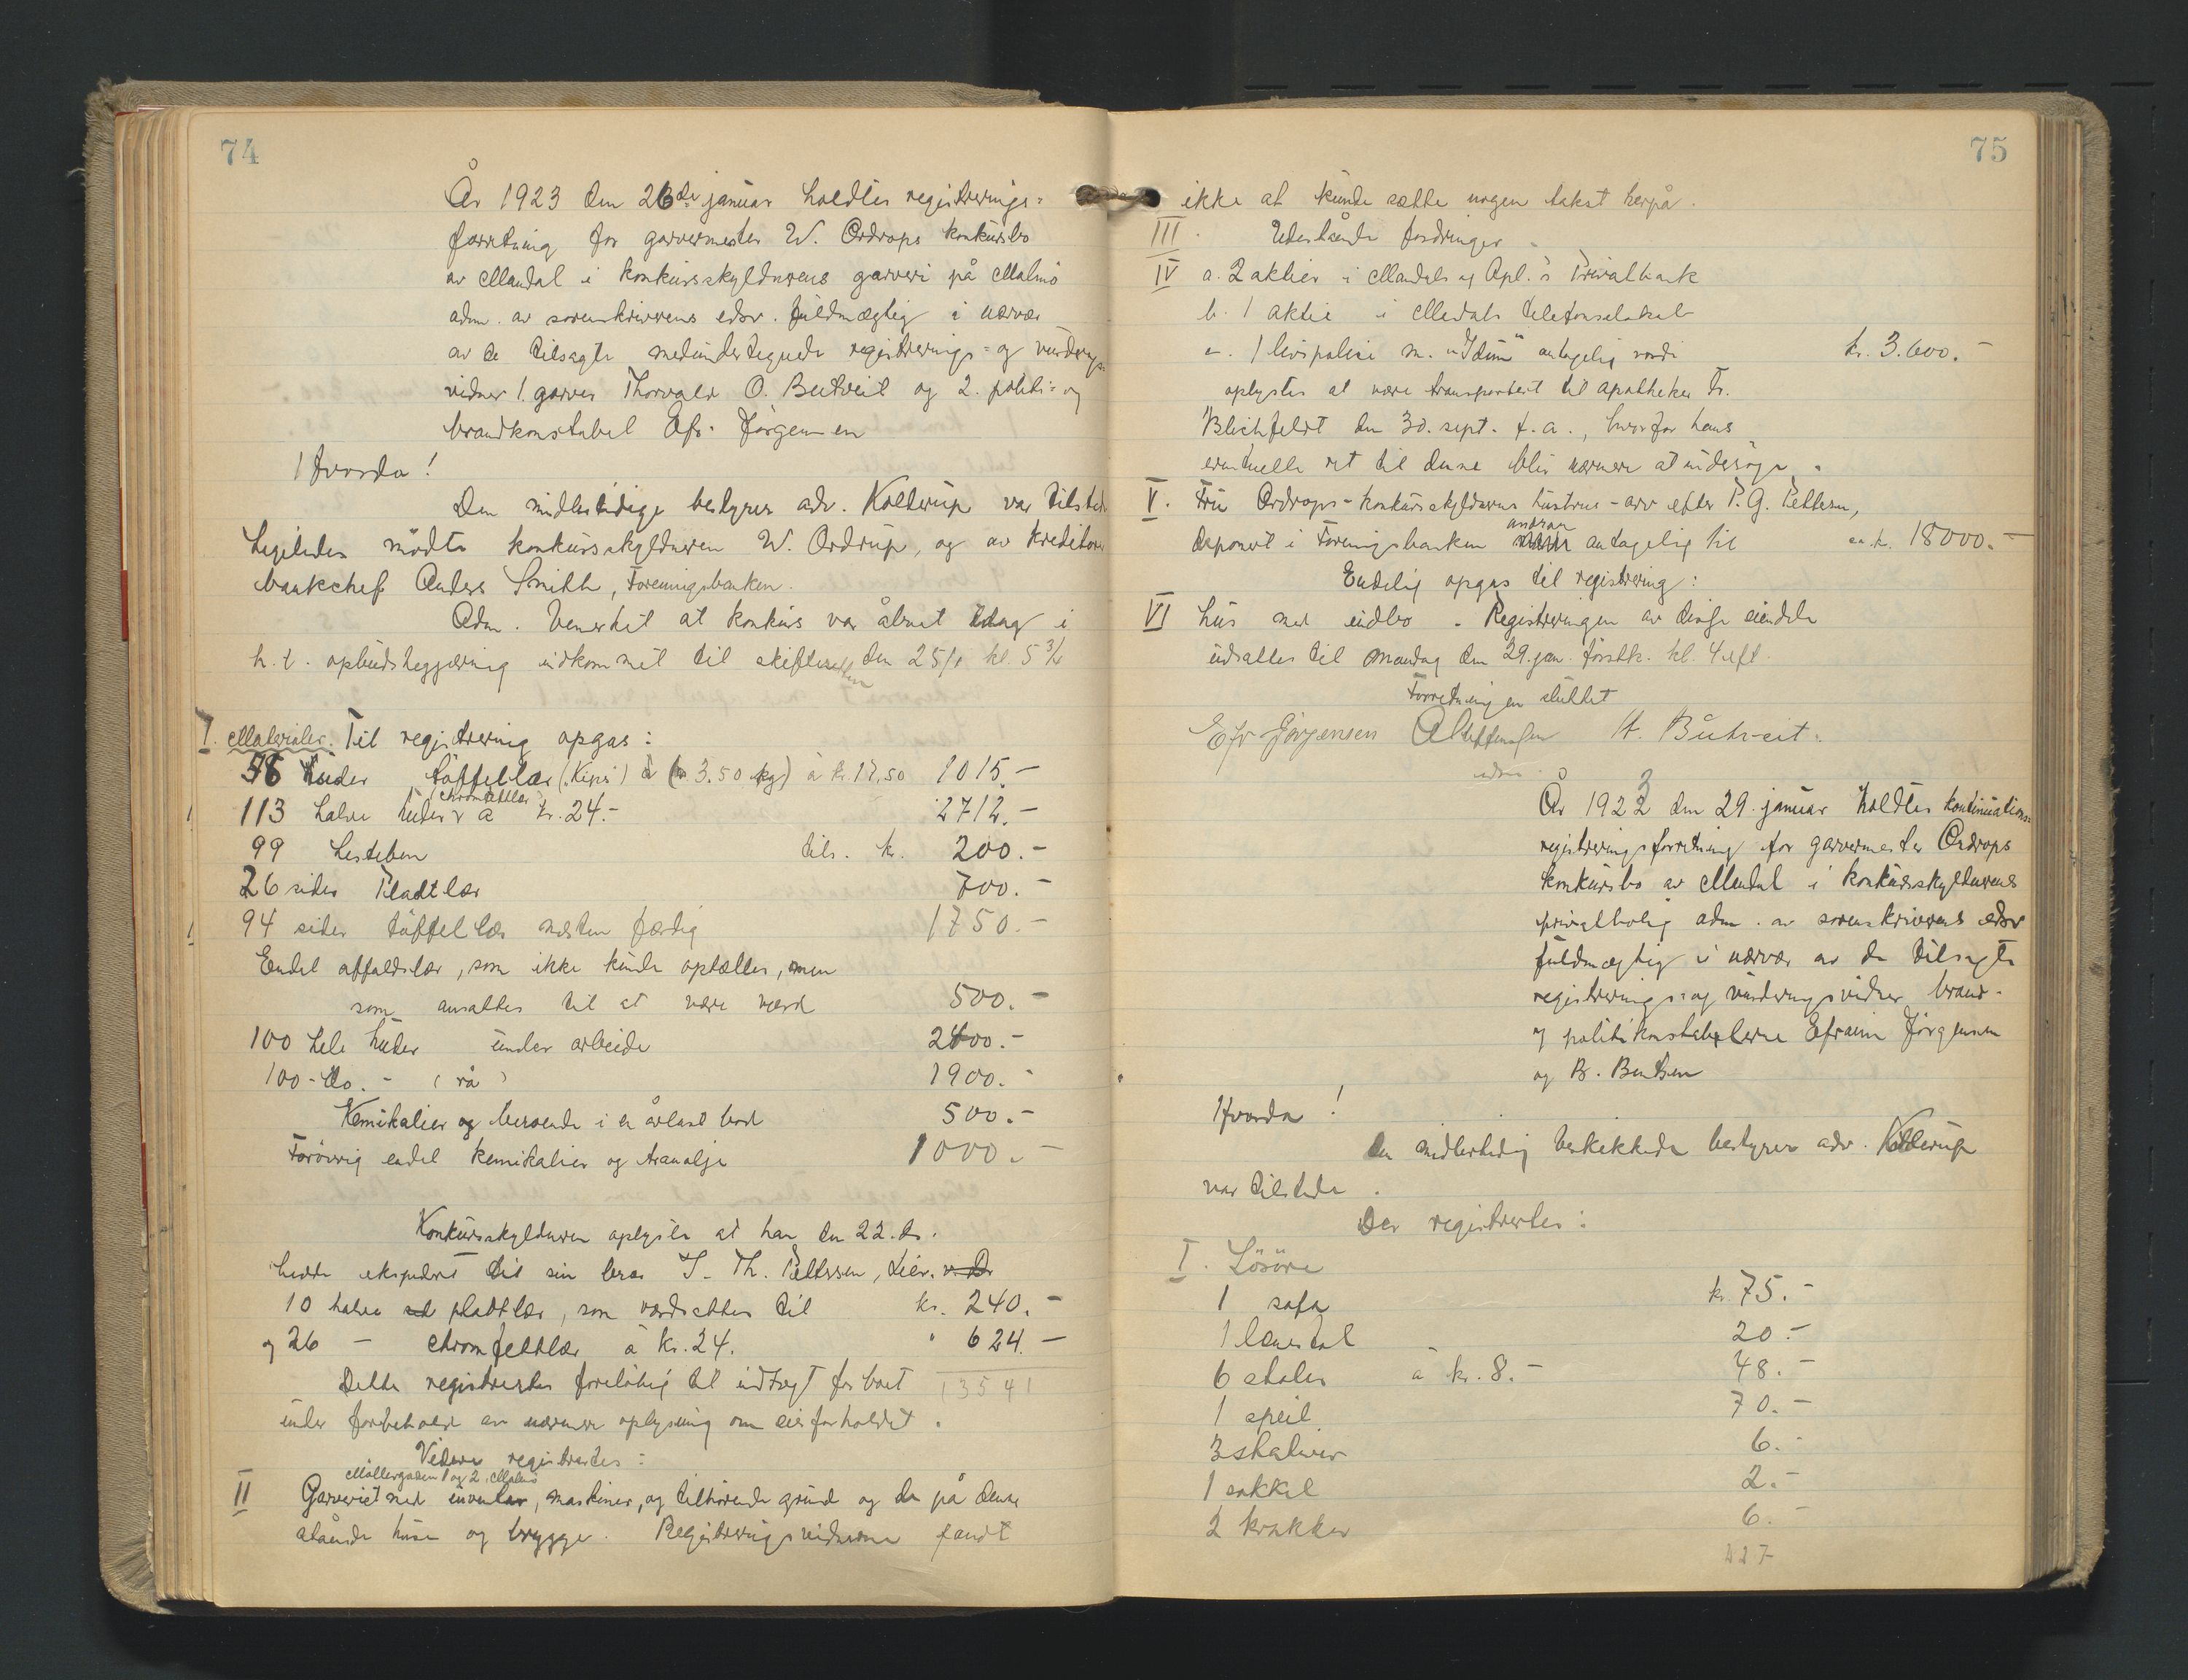 74
År 1923 den 26de januar holdtes registrerings=
forretning for garvermester W. Ordrops konkursbo
av Mandal i konkursskyldnerens garveri på Malmö
adm. av sorenskriverens edsv. fuldmægtig i nærvær
av de tilsagte medundertegnede registrerings= og vurderings
vidner 1. garver Thorvald O. Butveit og 2. politi= og
brandkonstabel Efr. Jörgensen
Hvorda!
Den midlertidige bestyrer adv. Kolterup var tilstede
Ligeledes mödte konkursskyldneren W. Ordrup, og av kreditorer
bankchef Anders Smith, Foreningsbanken.
Adm. bemerket at konkurs var åbnet idag i
h. t. opbudsbegjæring indkommet til skifteretten den 25/1 kl. 5 3/4
I. Materialer. Til registrering opgas:
58 huder töffellær (Kips) à (kr 3.50 kg) à kr. 17,50 1015.-
113 halve huder chromfetlær à kr. 24.- 2712.-
99 hesteben tils. kr. 200.-
26 sider Pladtlær 700.-
94 sider töffellær næsten færdig 1750.-
Endel affaldslær, som ikke kunde optælles, men
som ansattes til at være værd 500.-
100 hele huder under arbeide 2400.-
100 - do. - (rå) 1900.-
Kemikalier og beroende i et avlast bod 500.-
Forövrig endel kemikalier og tranolje 1000.-
Konkursskyldneren oplyste at han den 22. ds.
hadde ekspedert til sin bror T. Th. Pettersen, Lier.
10 halve plattlær, som værdsættes til kr. 240.-
og 26 - chromfettlær à kr. 24. " 624.-
Dette registrertes forelöbig til indtægt for boet 13541
under forbehold av nærmere oplysning om eierforholdet.
Videre registrertes:
Möllergaden 1 og 2, Malmö
II Garveriet med inventar, maskiner, og tilhörende grund og de på denne
stående huse og brygge. Registreringsvidnerne fandt
75
ikke at kunde sætte nogen takst herpå.
III. Utestående fordringer
IV a. 2 aktier i Mandals og Opl.s Privatbank
b. 1 aktie i Mandals telefonselskab
c. 1 livspolice m. "Idun" antagelig værdi kr. 3.600.-
oplystes at være transportert til apotheker Fr.
Blichfeldt den 30. sept. f. a., hvorfor hans
eventuelle ret til denne blir nærmere at undersöge.
V. Fru Ordrops - konkursskyldnerens hustrus - arv efter P. G. Pettersen,
deponert i Foreningsbanken andrar antagelig til ca. kr. 18000.-
Endelig opgas til registrering:
VI hus med indbo. Registreringen av disse eiendele
udsattes til mandag den 29. jan. förstk. kl. 4 eft.
Forretningen sluttet
Efr Jörgensen A Steffensen T. Båtveit.
edsv.
År 1923 den 29. januar holdtes kontinuations=
registreringsforretning for garvermester Ordrops
konkursbo av Mandal i konkursskyldnerens
privatbolig adm. av sorenskriverens edsv
fuldmægtig i nærvær av de tilsagte
registrerings= og vurderingsvidner brand-
og politikonstablerne Efraim Jörgensen
og B. Bentsen
Hvorda!
Den midlertidig beskikkede bestyrer adv. Kolterup
var tilstede.
Der registrertes:
I. Lösöre
1 sofa kr. 75.-
1 lænestol 20.-
6 stoler à kr. 8.- 48.-
1 speil 70.-
3 stativer 6.-
1 sokkel 2.-
2 krakker 6.-
227